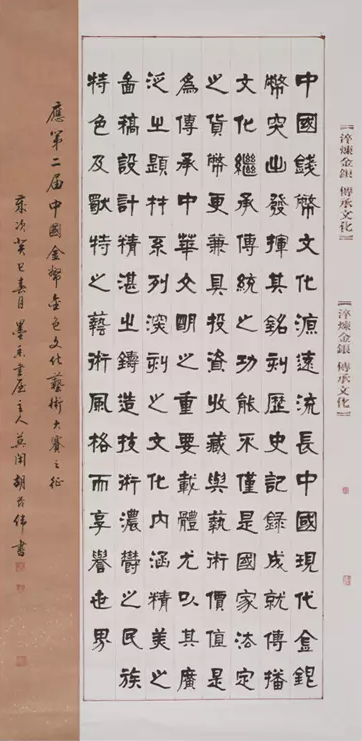 淬煉金銀 傳承文化
淬煉金銀 傳承文化
中國錢幣文化源遠流長中國現代金銀
幣突出發揮其銘刻歷史記錄成就傳播
文化繼承傳統之功能不僅是國家法定
之貨幣更兼具投資收藏與藝術價值是
為傳承中華文明之重要載體尤以其廣
泛之題材系列深刻之文化內涵精美之
圖稿設計精湛之鑄造技術濃鬱之民族
特色及獨特之藝術風格而享譽世界
應第二届中國金幣金色文化藝術大賽之征
歲次癸巳春月墨香書屋主人 胡 偉書